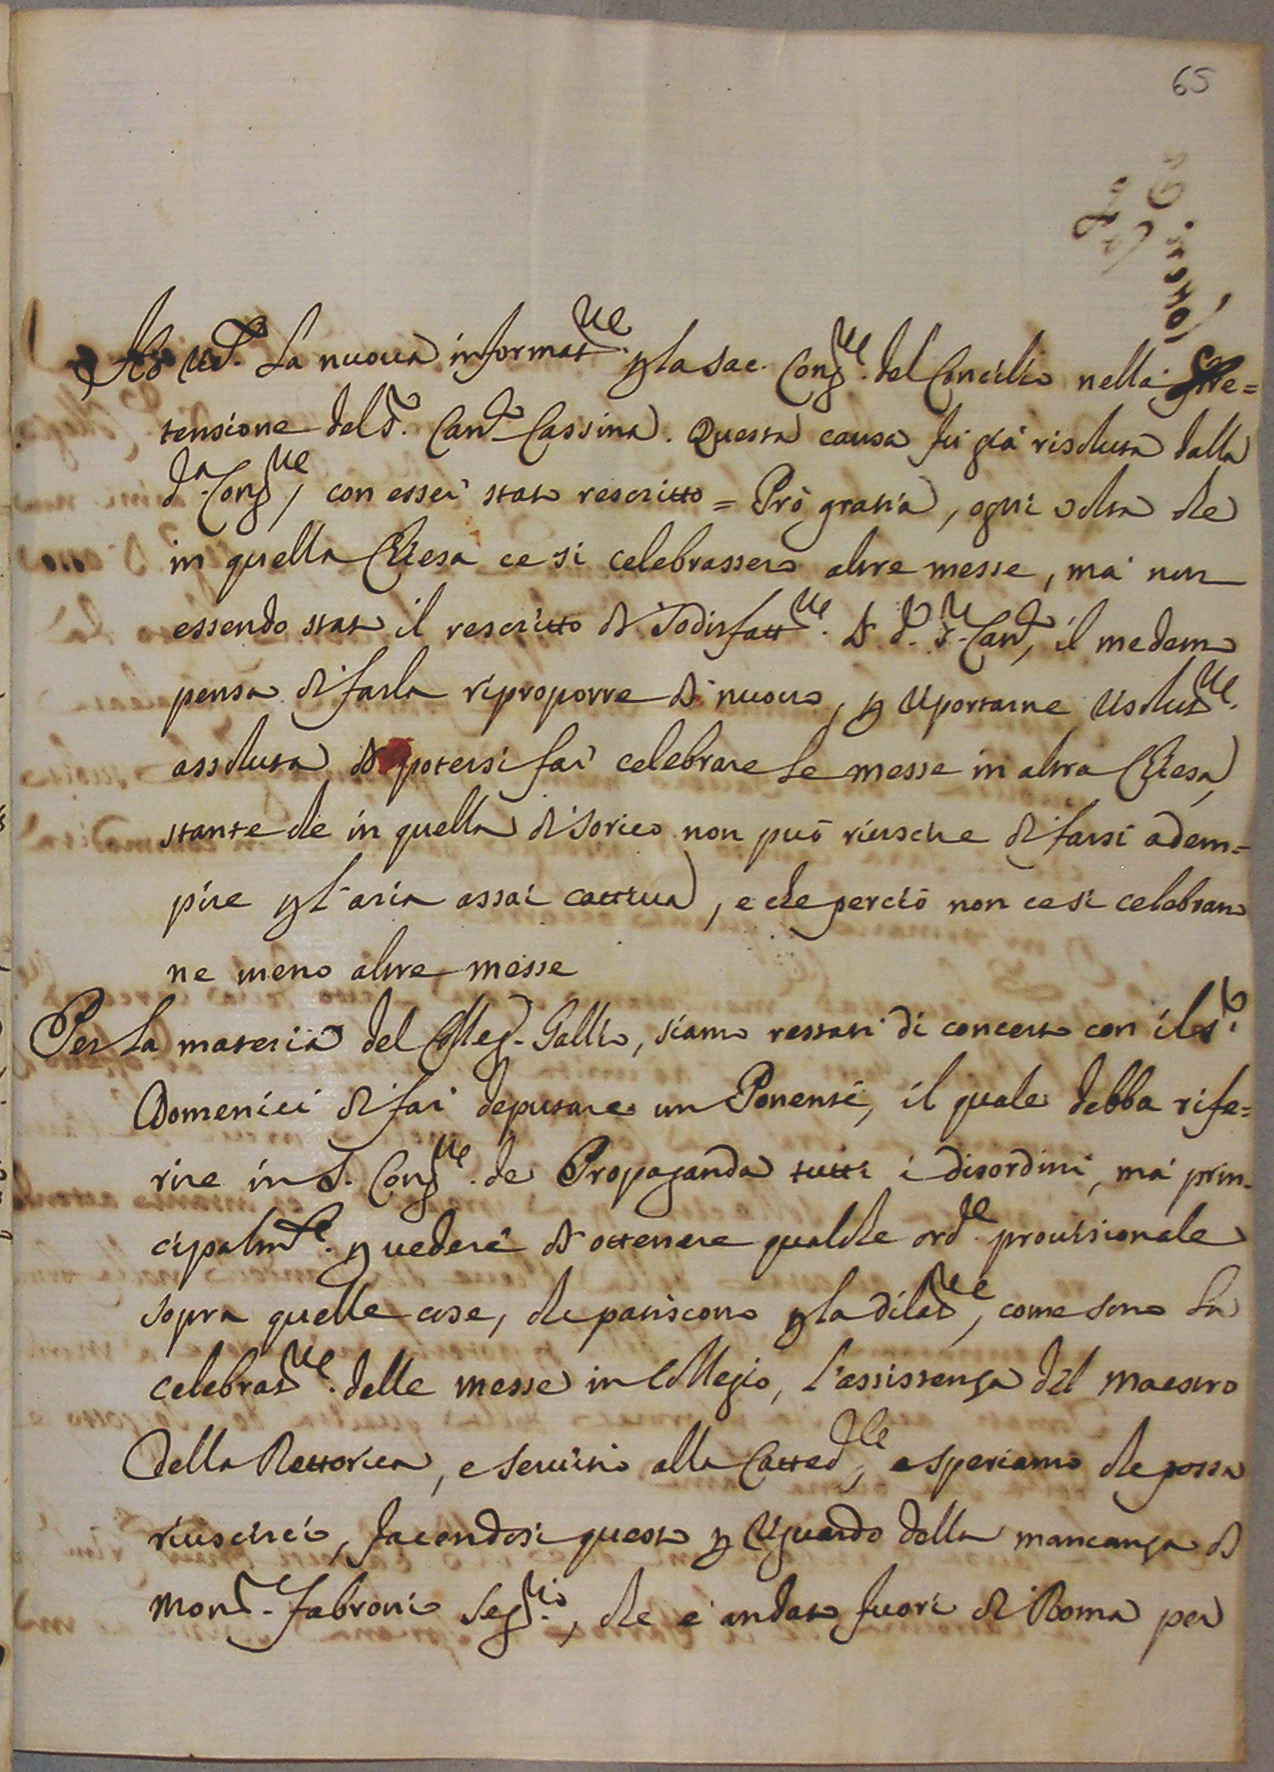 65
Ho ved.ª la nuoua informat.ne p la sac. Cong.ne del Concilio nella pre=
tensione del S.r Can.co Cassina. Questa causa fù già risoluta dalla
d.ª Cong.ne, con esser' stato rescritto = Prò gratia, ogni volta che
in quella Chiesa ce si celebrassero altre messe, mà non
essendo stato il rescritto di sodisfatt.ne di d.º S.r Can.co, il medemo
pensa di farla riproporre di nuouo, p riportarne risolut.ne
assoluta di potersi far' celebrare le messe in altra Chiesa,
stante che in quella di Sorico non può riuscire di farsi adem=
pire p l'aria assai cattiua, e che perciò non ce si celebrano
ne meno altre messe
Per la materia del Colleg.º Gallio, siamo restati di concerto con il S.r
Domenici di far' deputare un Ponente, il quale debba rife=
rire in S. Cong.ne de Propaganda tutti i disordini, mà prin=
cipalm.te p vedere di ottenere qualche ord.e prouisionale
sopra quelle cose, che patiscono p la dilat.ne, come sono la
celebrat.ne delle messe in Collegio, l'assistenza del maestro
della Rettorica, e seruitio alla Catted.le, e speriamo che possa
riuscirci, facendosi questo p riguardo della mancanza di
Mons.r Fabroni Seg.rio, che è andato fuori di Roma per